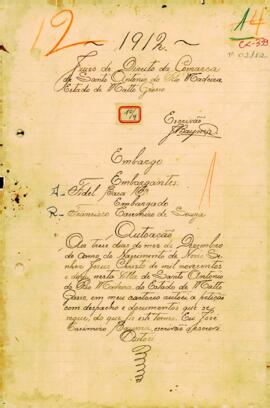 12
~ 1912. ~
A4
CX-339
Nº 02/12
Juizo de Direito da Comarca
de Santo Antonio do Rio Madeira
Estado de Matto Grosso
Escrivão
Embargo
Embargantes
A- Fidel
Embargado
R- Francisco Casimiro de
Autoação
Aos tres dias do mez de Dezembro
do anno do Nascimento de Nosso Se-
nhor Jesus Christo de mil novecentos
e doze nesta Villa de Santo Antonio
do Rio Madeira, do Estado de Matto
Grosso, em meu cartorio autoei a petição
com despacho e documentos que se
segue, do que fiz este termo. Eu José
Casimiro escrivão